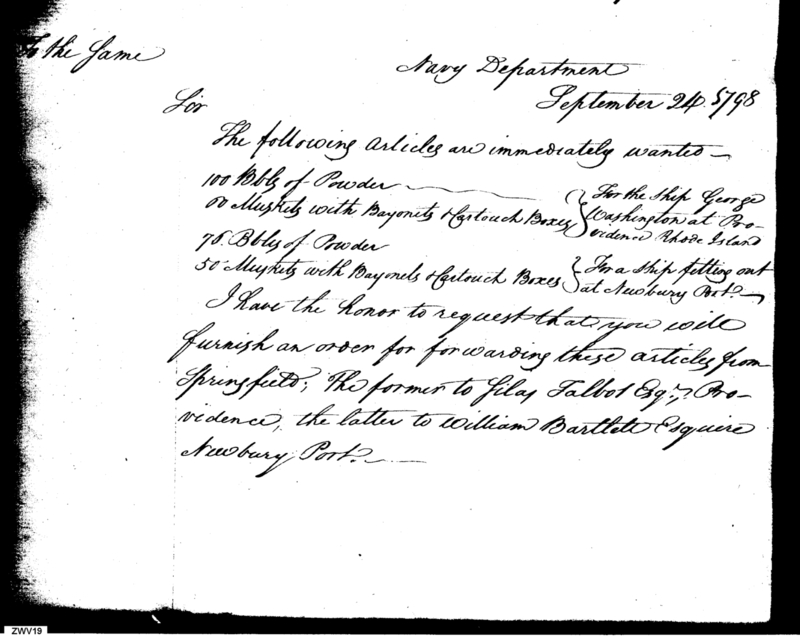 To the Same
Navy Department
September 24. 1798
Sir
The following articles are immediately wanted
100 Bbls of Powder
60 Muskets with Bayonets & Cartouch Boxes
For the Ship George
Washington at Pro-
vidence Rhode Island
76. Bbls of Powder
50 Muskets with Bayonets & Cartouch Boxes
For a Ship fitting out
at Newbury Port.
I have the honor to request that you will
furnish an order for forwarding these articles from
Springfield; The former to Silas Talbot Esqr. Pro-
vidence, the latter to William Bartlett Esquire
Newbury Port.
ZWV19